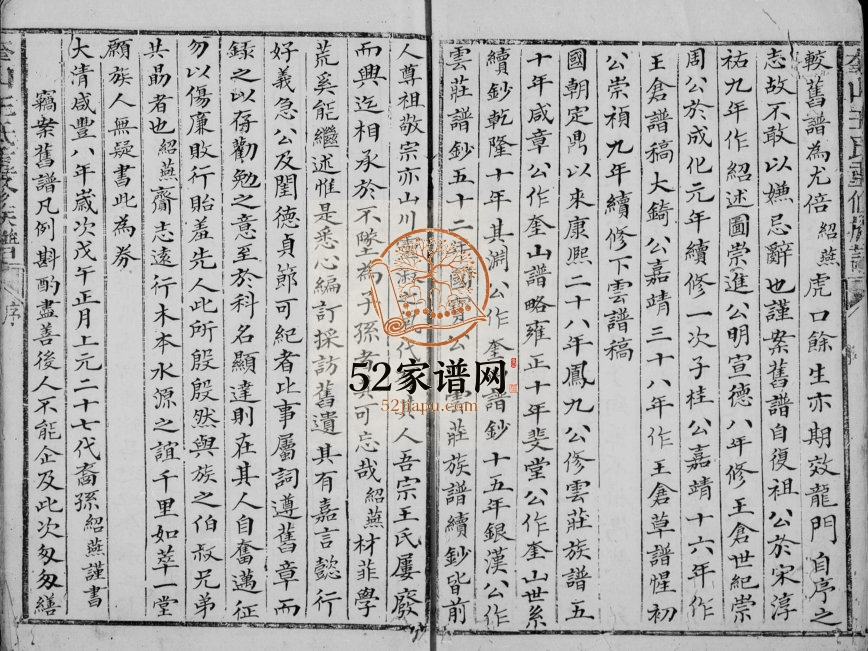 較舊譜為尤倍紹燕虎口餘生亦期效龍門自序之
志故不敢以嫌忌辭也謹案舊譜自復祖公於宋淳
祐九年作紹述圖崇進公明宣德八年修王倉世紀崇
周公於成化元年續修一次子桂公嘉靖十六年作
王倉譜稿大錡公嘉靖三十八年作王倉草譜惺初
公崇禎九年續修下雲譜稿
國朝定鼎以來康熙二十八年鳳九公修雲莊族譜五
十年咸章公作奎山譜略雍正十年斐堂公作奎山世系
續鈔乾隆十年其淵公作奎譜鈔十五年銀漢公作
雲莊譜鈔五十二年國公雲莊族譜續鈔皆前
人尊祖敬宗亦山川代其人吾宗王氏屢廢
而興迄相承於不墜為子孫者其可忘哉紹燕材菲學
荒奚能繼述惟是悉心編訂採訪舊遺其有嘉言懿行
好義急公及閨德貞節可紀者比事屬詞遵舊章而
錄之以存勸勉之意至於科名顯達則在其人自奮邁征
勿以傷廉敗行貽羞先人此所殷殷然與族之伯叔兄弟
共勗者也紹燕齋志遠行木本水源之誼千里如萃一堂
願族人無疑書此為券
大清咸豐八年歲次戊午正月上元二十七代裔孫紹燕謹書
竊案舊譜凡例斟酌盡善後人不能企及此次匆匆繕
序
52家谱网
52jiapu.com